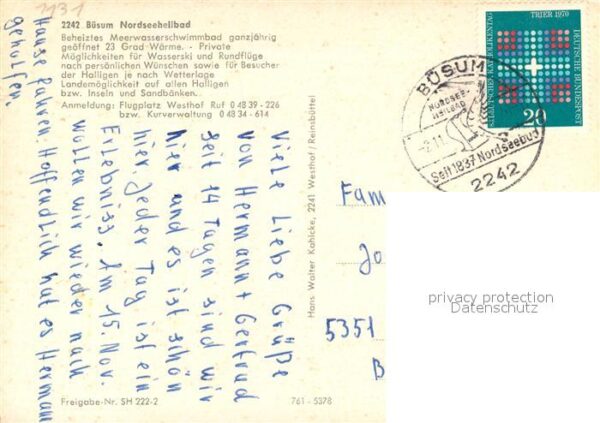 1131
2242 Büsum Nordseeheilbad
Beheiztes Meerwasserschwimmbad ganzjährig
geöffnet 23 Grad Wärme. - Private
Möglichkeiten für Wasserski und Rundflüge
nach persönlichen Wünschen sowie für Besucher
der Halligen je nach Wetterlage
Landemöglichkeit auf allen Halligen
bzw. Inseln und Sandbänken.
Anmeldung: Flugplatz Westhof Ruf 0 48 39 - 226
bzw. Kurverwaltung 0 48 34 - 614
Viele Liebe Grüße
von Hermann + Gertrud
seit 14 Tagen sind wir
hier und es ist schön
hier. Jeder Tag ist ein
Erlebniss. Am 15. Nov.
wollen wir wieder nach
Hause fahren. Hoffendlich hat es Hermann
geholfen.
Hans Walter Kahlcke, 2241 Westhof / Reinsbüttel
Freigabe-Nr. SH 222-2
761 - 5378
BÜSUM
NORDSEE-
HEILBAD
-2.11.
Seit 1837 Nordseebad
2242
83. DEUTSCHER KATHOLIKENTAG
TRIER 1970
DEUTSCHE BUNDESPOST
20
Fam
Jo
5351
B
privacy protection
Datenschutz